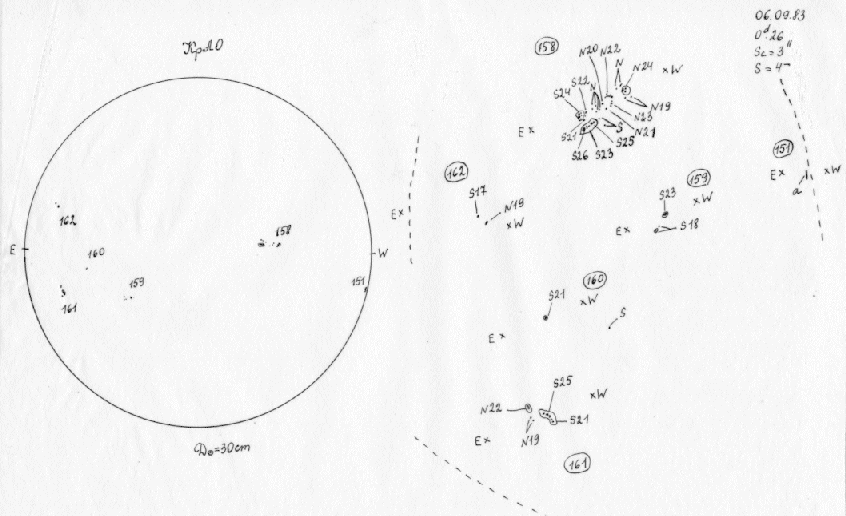 КрАО
162
E
160
158
W
159
151
161
D⊙=30cm
06.09.83
0ᵈ.26
SL=3"
S=4
158
N20
N22
N
N24
xW
S22
N
S24
N19
N23
N21
Ex
S21
S
S25
S26
S23
162
S17
N19
xW
Ex
159
S23
xW
Ex
S18
151
Ex
xW
a
160
S21
xW
S
Ex
S25
xW
N22
S21
Ex
N19
161